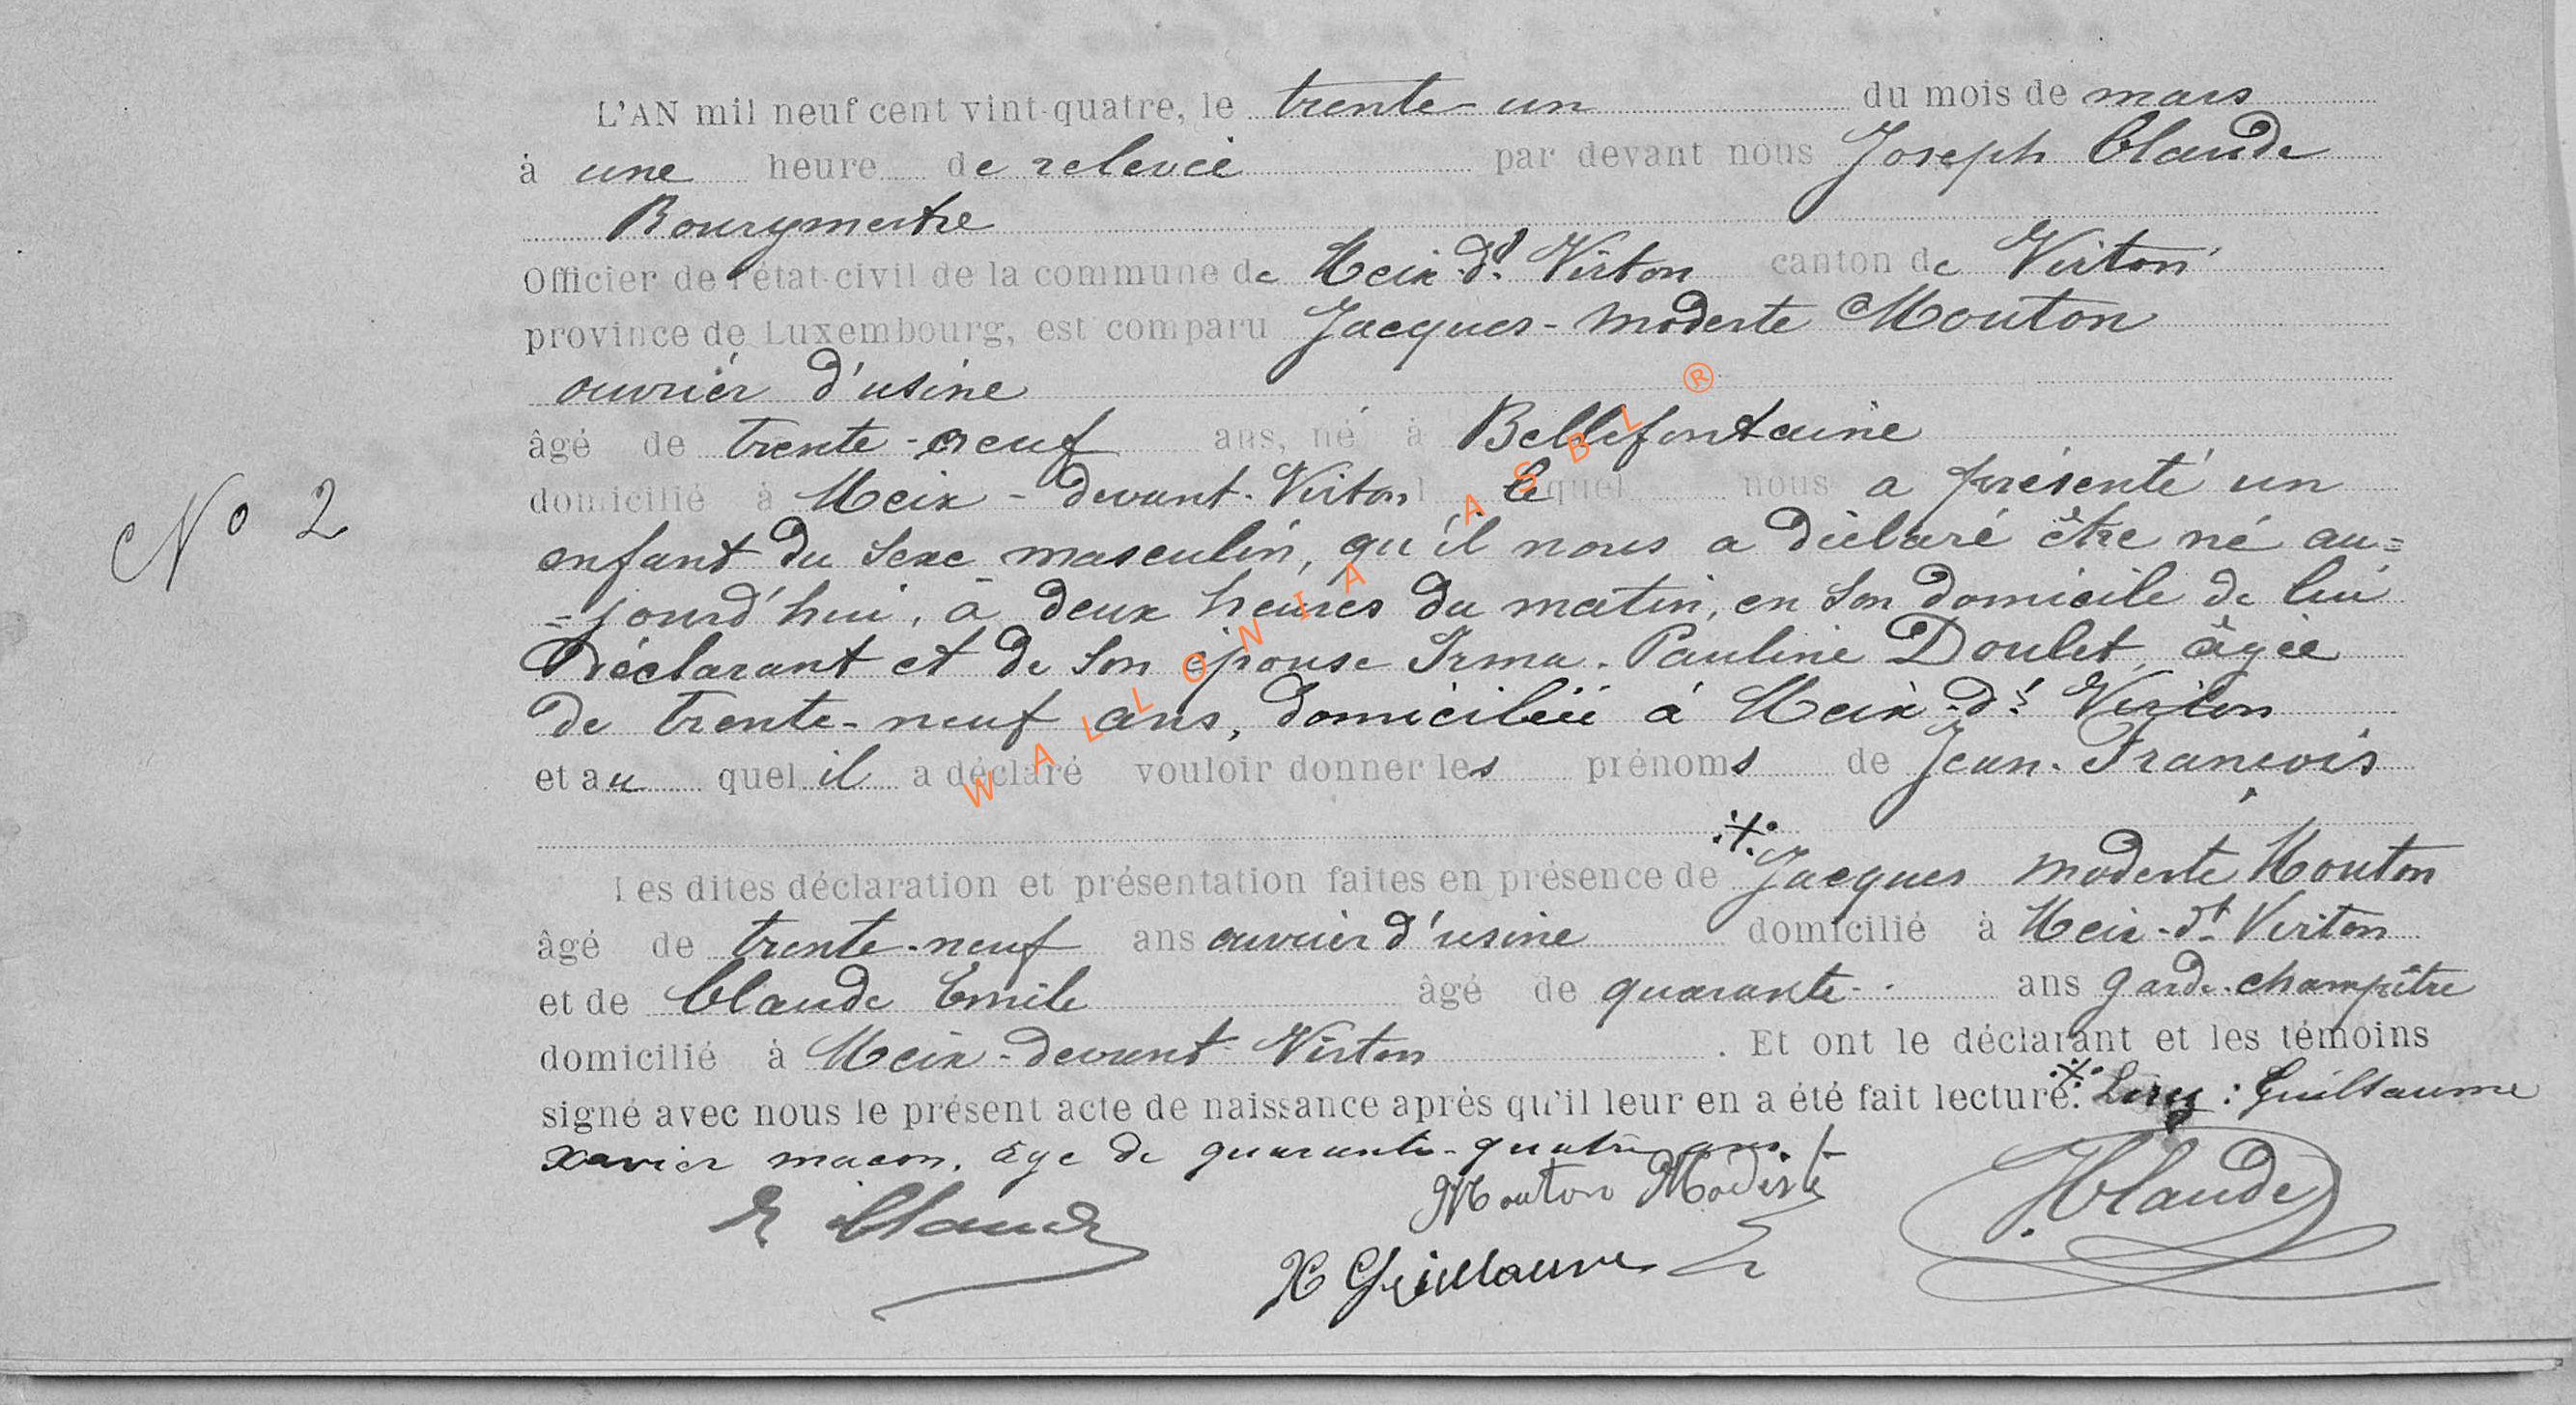 L'AN mil neuf cent vint-quatre, le trente-un du mois de mars
à une heure de relevée par devant nous Joseph Claude
Bourgmestre
Officier de l'état-civil de la commune de Meix-dt Virton canton de Virton
province de Luxembourg, est comparu Jacques-Modeste Mouton
ouvrier d'usine
âgé de trente-neuf ans, né à Bellefontaine
domicilié à Meix-devant-Virton lequel nous a présenté un
No 2
enfant du sexe masculin, qu'il nous a déclaré être né au=
=jourd'hui, à deux heures du matin, en son domicile de lui
Déclarant et de son épouse Irma-Pauline Doulet, âgée
de trente-neuf ans, domiciliée à Meix-dt Virton
et au quel il a déclaré vouloir donner les prénoms de Jean-François
Les dites déclaration et présentation faites en présence de Jacques Modeste Mouton
âgé de trente-neuf ans ouvrier d'usine domicilié à Meix-dt Virton
et de Claude Emile âgé de quarante ans garde-champêtre
domicilié à Meix-devant-Virton . Et ont le déclarant et les témoins
signé avec nous le présent acte de naissance après qu'il leur en a été fait lecture. Lisez : Guillaume
Xavier macon, âgé de quarante-quatre ans
E Claude
Mouton Modeste
X Guillaume
J Claude
WALLONIA ASBL ®